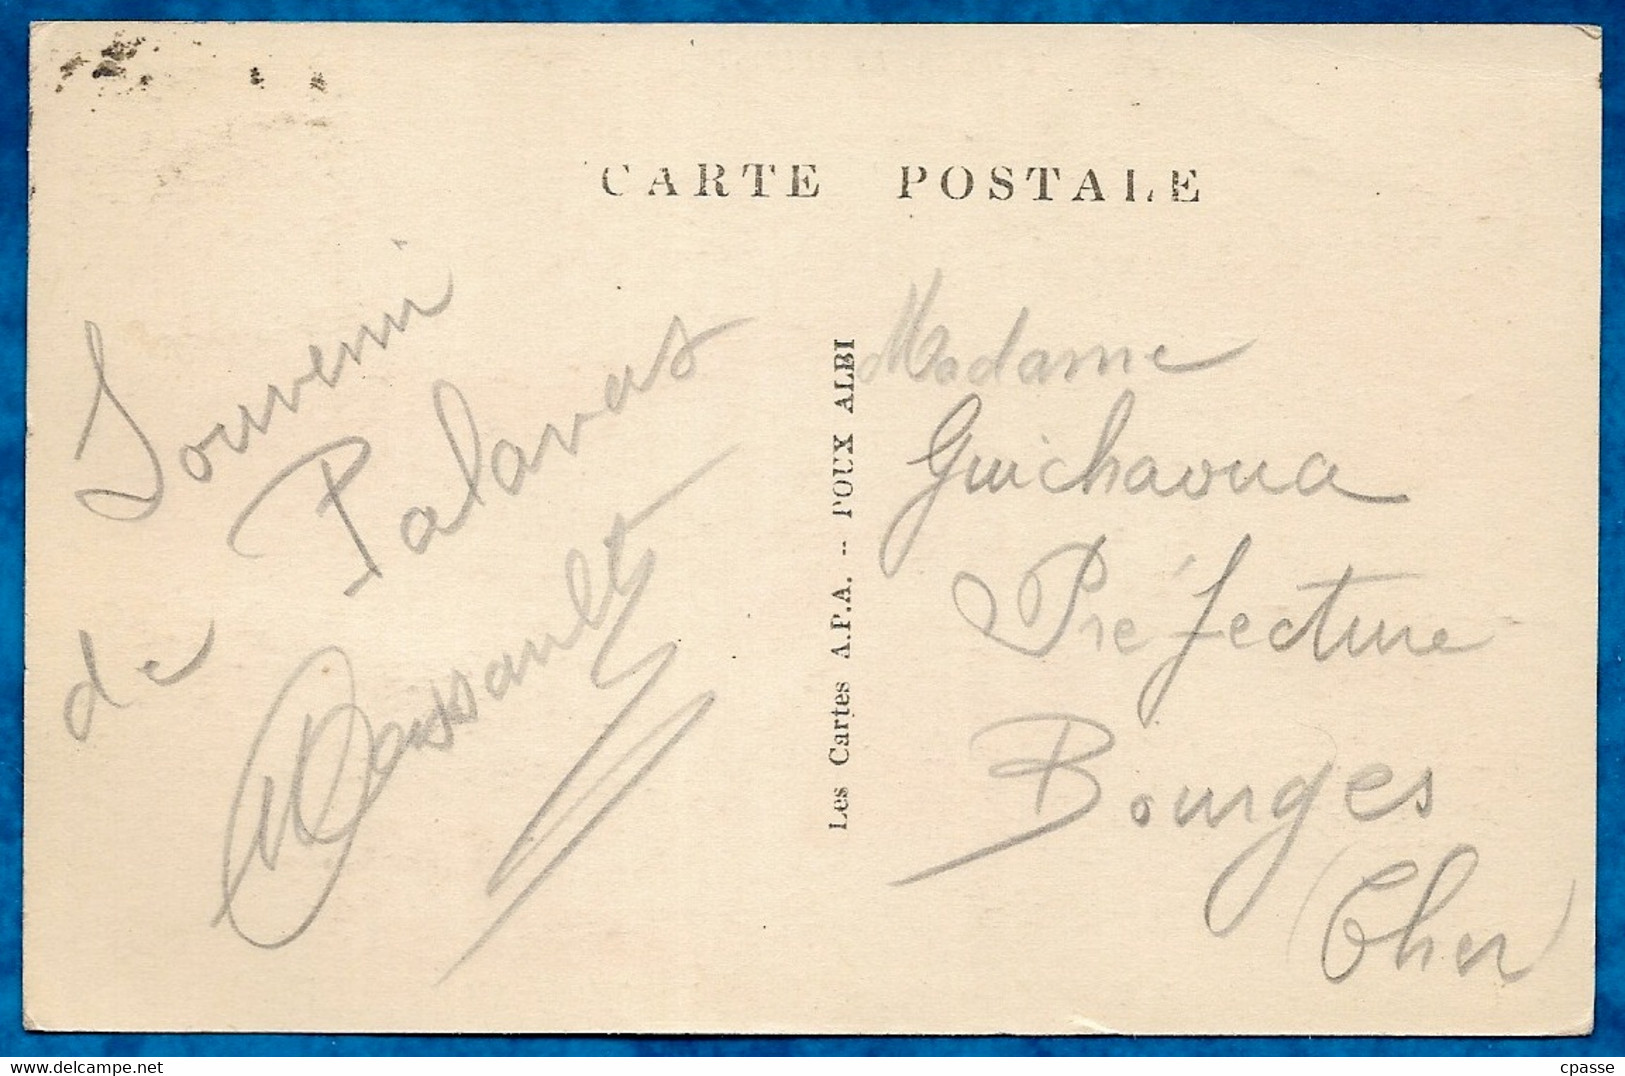 CARTE POSTALE
Souvenir
de Palavas
Les Cartes A.P.A. -- POUX ALBI
Madame
Guichaoua
Préfecture
Bourges
(Cher)
cpasse